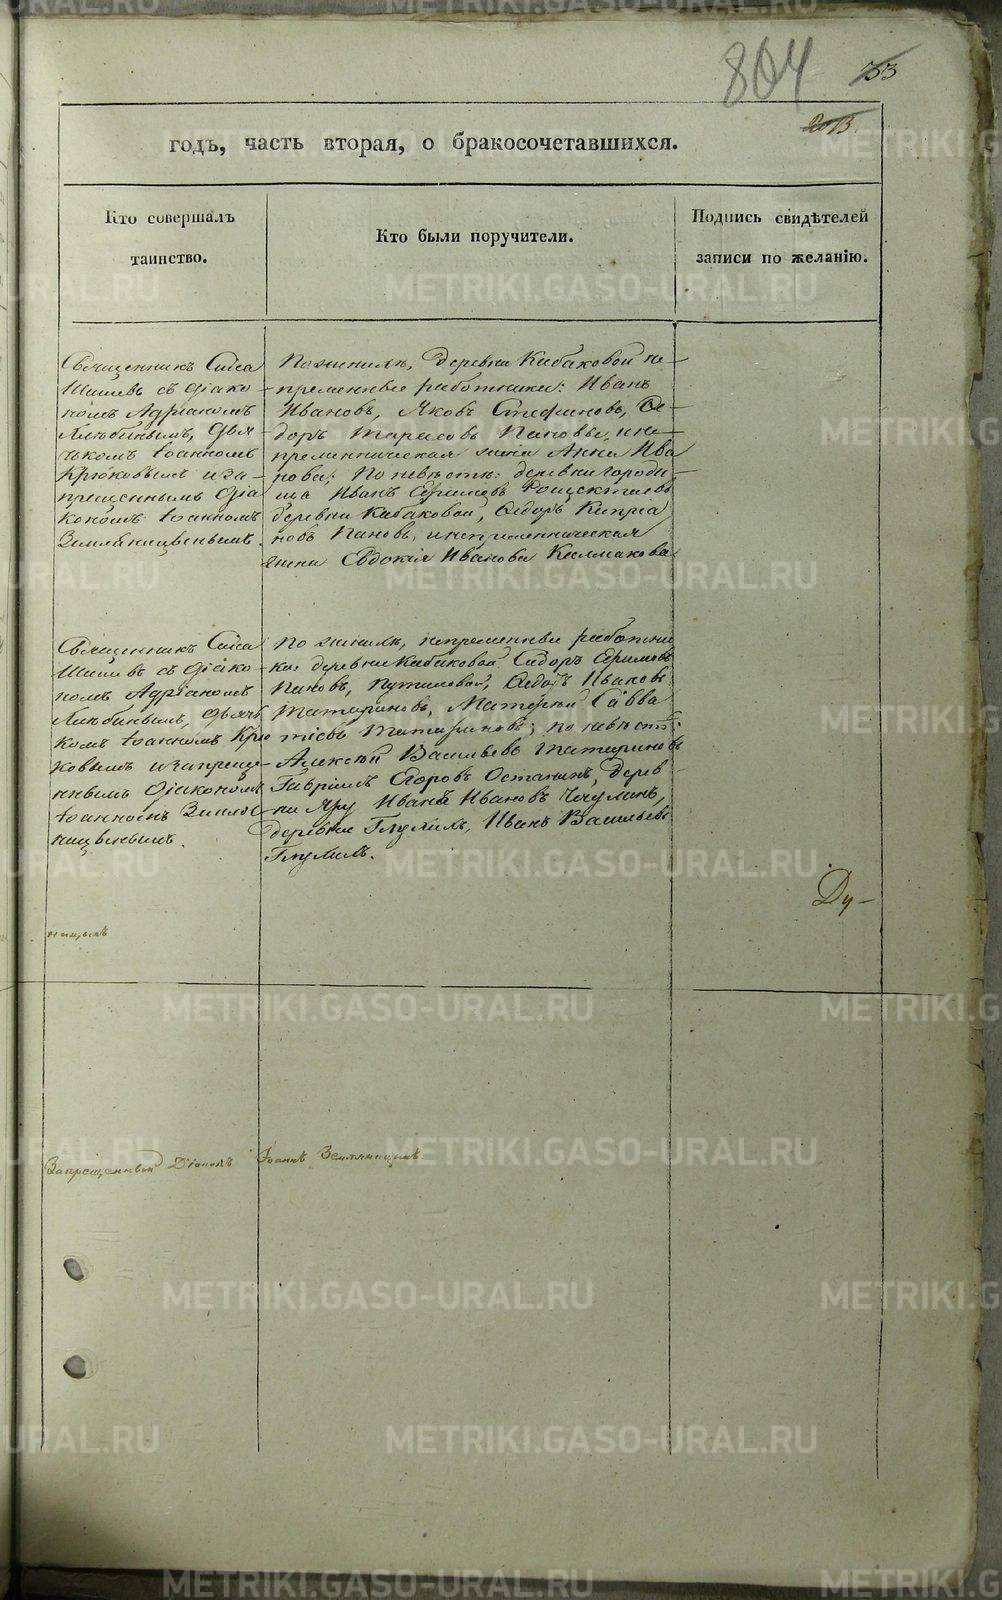 804
33
2013.
годъ, часть вторая, о бракосочетавшихся.
Кто совершалъ
таинство.
Кто были поручители.
Подпись свидѣтелей
записи по желанію.
Священникъ Сиса
Шишевъ съ діако-
номъ Адріаномъ
Любинымъ, дья-
чькомъ Іоанномъ
Крюковымъ и за-
прещеннымъ діа
кономъ Іоанномъ
Земляницынымъ.
По женихѣ, деревни Кабаковой не-
пременные работники: Иванъ
Ивановъ, Яковъ Стефановъ, Ѳе-
доръ Тарасовъ Пановы, и не-
пременническая жена Анна Ива
нова; По невѣстѣ: деревни Городи
ща Иванъ Ефимовъ
деревни Кабаковой, Ѳедоръ Кипріа
новъ Пановъ, и непременническая
жена Евдокія Иванова Калмакова.
Священникъ Сиса
Шишевъ съ діако-
номъ Адріаномъ
Любинымъ, дьячь
комъ Іоанномъ Крю
ковымъ и запреще-
ннымъ діакономъ
Іоанномъ Земля
ницынымъ.
По женихѣ, непременные работни
ки деревни Кабаковой Сидоръ Ефимовъ
Пановъ, Путиловой, Ѳедотъ Ивановъ
Татариновъ, Матѳей Савва
тіевъ Татариновъ; по невѣстѣ:
Алексѣй Васильевъ Татариновъ
Гавріилъ Ѳедоровъ Останинъ, дерев-
ни Яру Иванъ Ивановъ
деревни Глухихъ, Иванъ Васильевъ
Глухихъ.
Ду-
ницынъ
Запрещенный Діаконъ Іоаннъ Земляницынъ
METRIKI.GASO-URAL.RU